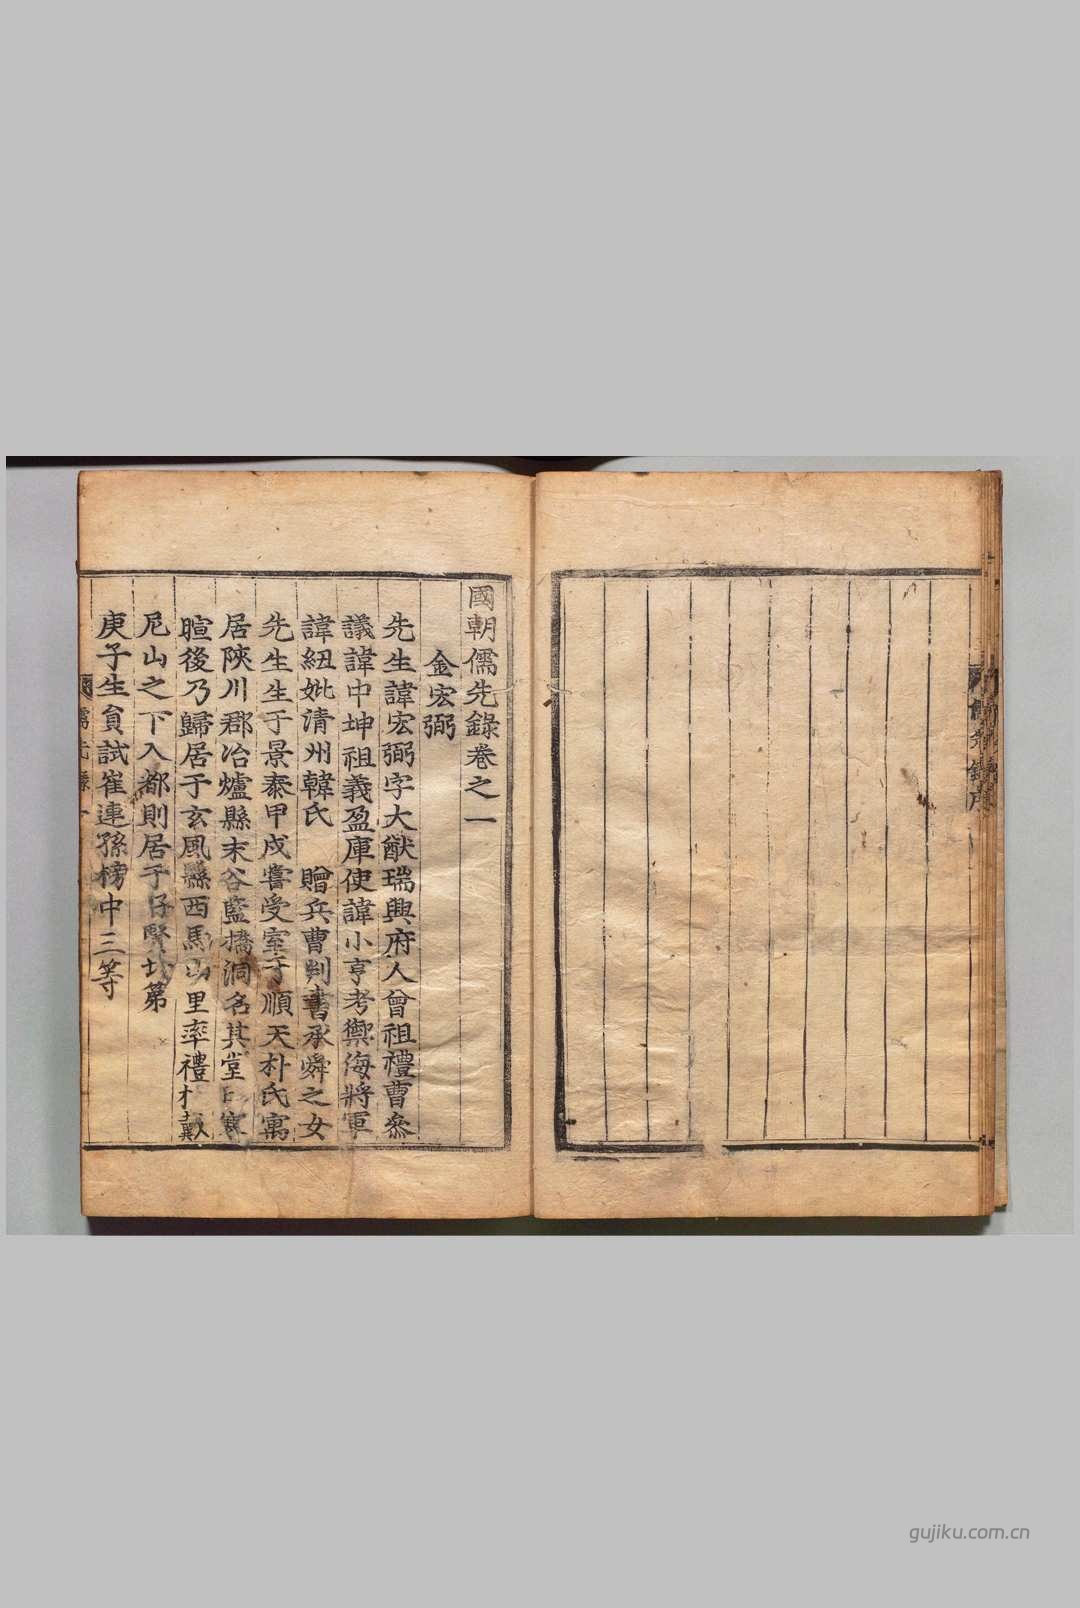 儒先錄序
國朝儒先錄卷之一
金宏弼
先生諱宏弼字大猷瑞興府人曾祖禮曹叅
議諱中坤祖義盈庫使諱小亨考禦侮將軍
諱紐妣清州韓氏 贈兵曹判書承舜之女
先生生于景泰甲戌嘗受室于順天朴氏寓
居陜川郡冶爐縣末谷藍橋洞名其堂曰寒
暄後乃歸居于玄風縣西馬山里率禮村戴
尼山之下入都則居于好賢坊第
庚子生員試崔連孫榜中三等
儒先錄 一
gujiku.com.cn